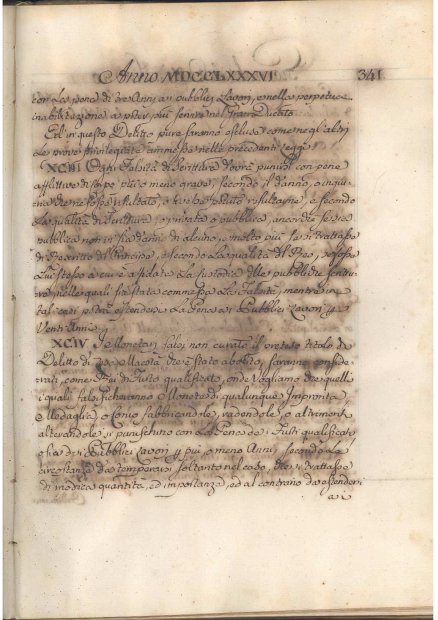 Anno MDCCLXXXVI 341
con la pena di tre Anni ai pubblici Lavori, e nella perpetua
inabilitazione a poter più servire nel Gran Ducato
Ed in questo Delitto pure saranno escluse come negl'altri
le prove privilegiate ammesse nelle precedenti Leggi.
XCIII Ogni Falsità di Scrittura dovrà punirsi con pene
afflittive di Corpo più o meno grave, secondo il danno, o ingiu-
ria che ne fosse resultato, o avrebbe potuto resultarne, e secondo
la qualità di Scrittura, o privata o pubblica, ancorchè se sia
pubblica non vi sia danno di alcuno, e molto più se si trattasse
di Rescritto del Principe, e secondo la qualità del Reo, se fosse
lui stesso a cui è affidata la custodia delle pubbliche scrittu-
re, nelle quali sia stata commessa la Falsità, mentre in
tal caso potrà estendersi la Pena ai Pubblici Lavori p
Venti Anni
XCIV I Monetari falsi, non curato il preteso titolo di
Delitto di Lesa Maestà che è stato abolito, saranno conside-
rati, come Rei di Furto qualificato, onde Vogliamo che quelli
i quali falsificheranno Monete di qualunque Impronta
Medaglia, o Conio fabbricandole, radendole, o altrimenti
alterandole si punischino con la Pena de i Furti qualificati
o sia de i Pubblici Lavori p più, o meno Anni, secondo le
circostanze da temperarsi soltanto nel caso, che si trattasse
di modica quantità, ed importanza, ed al contrario da estendersi
a i